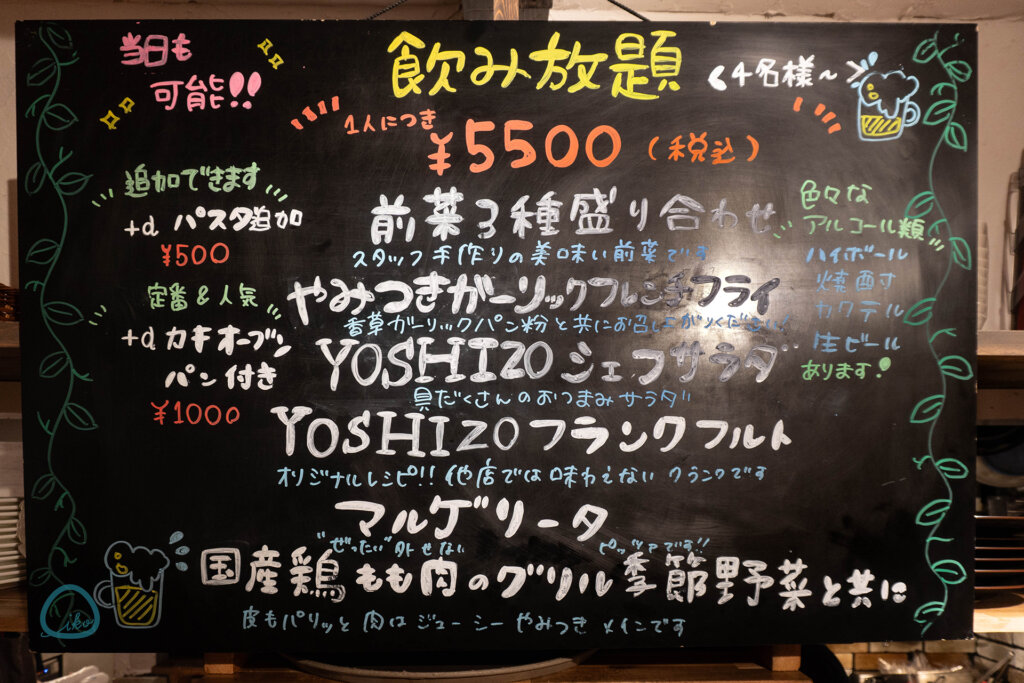 当日も
可能!!
飲み放題
<4名様~>
1人につき
¥5500(税込)
追加できます
+d パスタ追加
¥500
定番&人気
+d カキオーブン
パン付き
¥1000
前菜3種盛り合わせ
スタッフ手作りの美味い前菜です
やみつきガーリックフレンチフライ
香草ガーリックパン粉と共にお召し上がりください!
YOSHIZOシェフサラダ
具だくさんのおつまみサラダ
YOSHIZOフランクフルト
オリジナルレシピ!! 他店では味わえない フランクです
マルゲリータ
"ぜったい"外せない ピッツァです!!
国産鶏もも肉のグリル季節野菜と共に
皮もパリッと 肉はジューシー やみつき メインです
色々な
アルコール類
ハイボール
焼酎
カクテル
生ビール
あります!